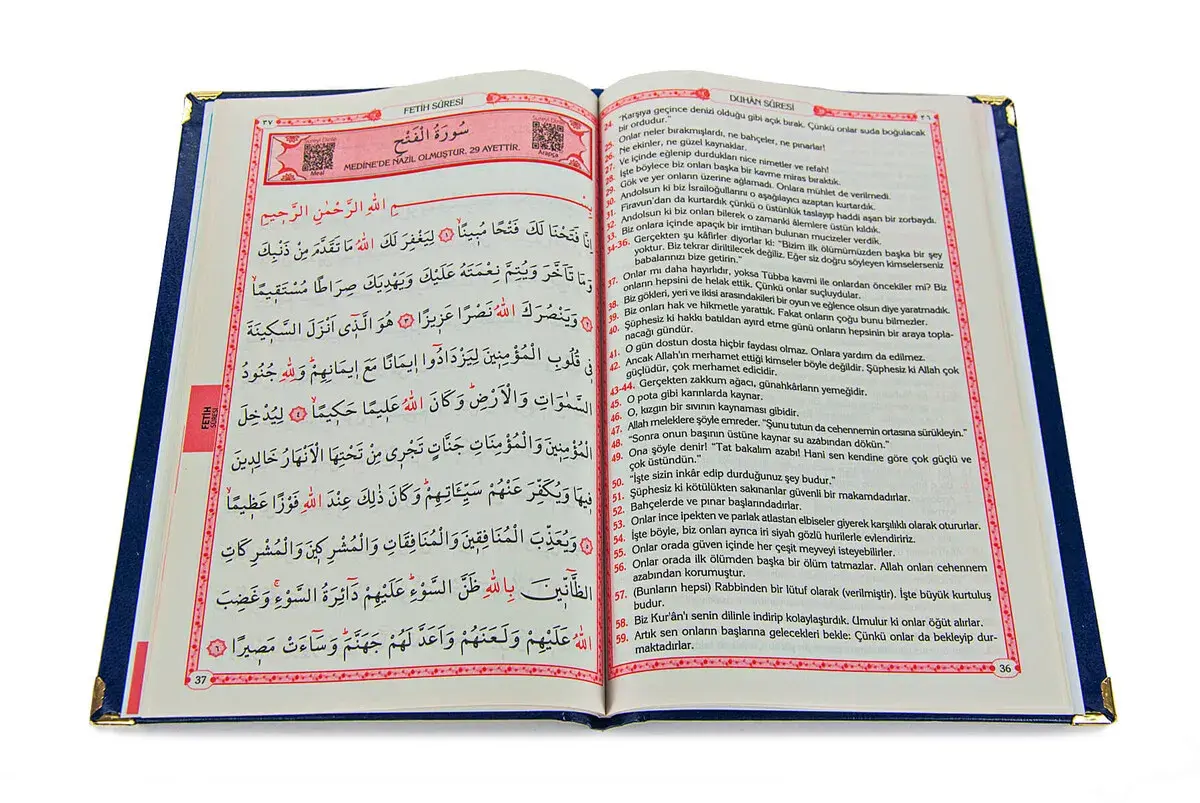 DUHÂN SÛRESİ
٣٦
24. "Karşıya geçince denizi olduğu gibi açık bırak. Çünkü onlar suda boğulacak
bir ordudur."
25. Onlar neler bırakmışlardı, ne bahçeler, ne pınarlar!
26. Ne ekinler, ne güzel kaynaklar.
27. Ve içinde eğlenip durdukları nice nimetler ve refah!
28. İşte böylece biz onları başka bir kavme miras bıraktık.
29. Gök ve yer onların üzerine ağlamadı. Onlara mühlet de verilmedi.
30. Andolsun ki biz İsrailoğullarını o aşağılayıcı azaptan kurtardık.
31. Firavun'dan da kurtardık çünkü o üstünlük taslayıp haddi aşan bir zorbaydı.
32. Andolsun ki biz onları bilerek o zamanki âlemlere üstün kıldık.
33. Biz onlara içinde apaçık bir imtihan bulunan mucizeler verdik.
34-36. Gerçekten şu kâfirler diyorlar ki: "Bizim ilk ölümümüzden başka bir şey
yoktur. Biz tekrar diriltilecek değiliz. Eğer siz doğru söyleyen kimselerseniz
babalarınızı bize getirin."
37. Onlar mı daha hayırlıdır, yoksa Tübba kavmi ile onlardan öncekiler mi? Biz
onların hepsini de helak ettik. Çünkü onlar suçluydular.
38. Biz gökleri, yeri ve ikisi arasındakileri bir oyun ve eğlence olsun diye yaratmadık.
39. Biz onları hak ve hikmetle yarattık. Fakat onların çoğu bunu bilmezler.
40. Şüphesiz ki hakkı batıldan ayırd etme günü onların hepsinin bir araya topla-
nacağı gündür.
41. O gün dostun dosta hiçbir faydası olmaz. Onlara yardım da edilmez.
42. Ancak Allah'ın merhamet ettiği kimseler böyle değildir. Şüphesiz ki Allah çok
güçlüdür, çok merhamet edicidir.
43-44. Gerçekten zakkum ağacı, günahkârların yemeğidir.
45. O pota gibi karınlarda kaynar.
46. O, kızgın bir sıvının kaynaması gibidir.
47. Allah meleklere şöyle emreder. "Şunu tutun da cehennemin ortasına sürükleyin."
48. "Sonra onun başının üstüne kaynar su azabından dökün."
49. Ona şöyle denir! "Tat bakalım azabı! Hani sen kendine göre çok güçlü ve
çok üstündün."
50. "İşte sizin inkâr edip durduğunuz şey budur."
51. Şüphesiz ki kötülükten sakınanlar güvenli bir makamdadırlar.
52. Bahçelerde ve pınar başlarındadırlar.
53. Onlar ince ipekten ve parlak atlastan elbiseler giyerek karşılıklı olarak otururlar.
54. İşte böyle, biz onları ayrıca iri siyah gözlü hurilerle evlendiririz.
55. Onlar orada güven içinde her çeşit meyveyi isteyebilirler.
56. Onlar orada ilk ölümden başka bir ölüm tatmazlar. Allah onları cehennem
azabından korumuştur.
57. (Bunların hepsi) Rabbinden bir lütuf olarak (verilmiştir). İşte büyük kurtuluş
budur.
58. Biz Kur'ân'ı senin dilinle indirip kolaylaştırdık. Umulur ki onlar öğüt alırlar.
59. Artık sen onların başlarına gelecekleri bekle: Çünkü onlar da bekleyip dur-
maktadırlar.
36
FETİH SÛRESİ
٣٧
سُورَةُ الْفَتْحِ
MEDİNE'DE NAZİL OLMUŞTUR. 29 AYETTİR.
Sureyi Dinle
Meal
Sureyi Dinle
Arapça
بِسْمِ اللهِ الرَّحْمٰنِ الرَّحٖيمِ
اِنَّا فَتَحْنَا لَكَ فَتْحًا مُبٖينًاۙ ﴿١﴾ لِيَغْفِرَ لَكَ اللهُ مَا تَقَدَّمَ مِنْ ذَنْبِكَ
وَمَا تَاَخَّرَ وَيُتِمَّ نِعْمَتَهُ عَلَيْكَ وَيَهْدِيَكَ صِرَاطًا مُسْتَقٖيمًاۙ
﴿٢﴾ وَيَنْصُرَكَ اللهُ نَصْرًا عَزٖيزًا ﴿٣﴾ هُوَ الَّذٖٓى اَنْزَلَ السَّكٖينَةَ
فٖى قُلُوبِ الْمُؤْمِنٖينَ لِيَزْدَادُٓوا اٖيمَانًا مَعَ اٖيمَانِهِمْۜ وَلِلّٰهِ جُنُودُ
السَّمٰوَاتِ وَالْاَرْضِۜ وَكَانَ اللهُ عَلٖيمًا حَكٖيمًاۙ ﴿٤﴾ لِيُدْخِلَ
الْمُؤْمِنٖينَ وَالْمُؤْمِنَاتِ جَنَّاتٍ تَجْرٖى مِنْ تَحْتِهَا الْاَنْهَارُ خَالِدٖينَ
فٖيهَا وَيُكَفِّرَ عَنْهُمْ سَيِّـَٔاتِهِمْۜ وَكَانَ ذٰلِكَ عِنْدَ اللهِ فَوْزًا عَظٖيمًاۙ
﴿٥﴾ وَيُعَذِّبَ الْمُنَافِقٖينَ وَالْمُنَافِقَاتِ وَالْمُشْرِكٖينَ وَالْمُشْرِكَاتِ
الظَّٓانّٖينَ بِاللهِ ظَنَّ السَّوْءِۜ عَلَيْهِمْ دَٓائِرَةُ السَّوْءِۚ وَغَضِبَ
اللهُ عَلَيْهِمْ وَلَعَنَهُمْ وَاَعَدَّ لَهُمْ جَهَنَّمَۜ وَسَٓاءَتْ مَصٖيرًا ﴿٦﴾
37
FETİH
SÛRESİ